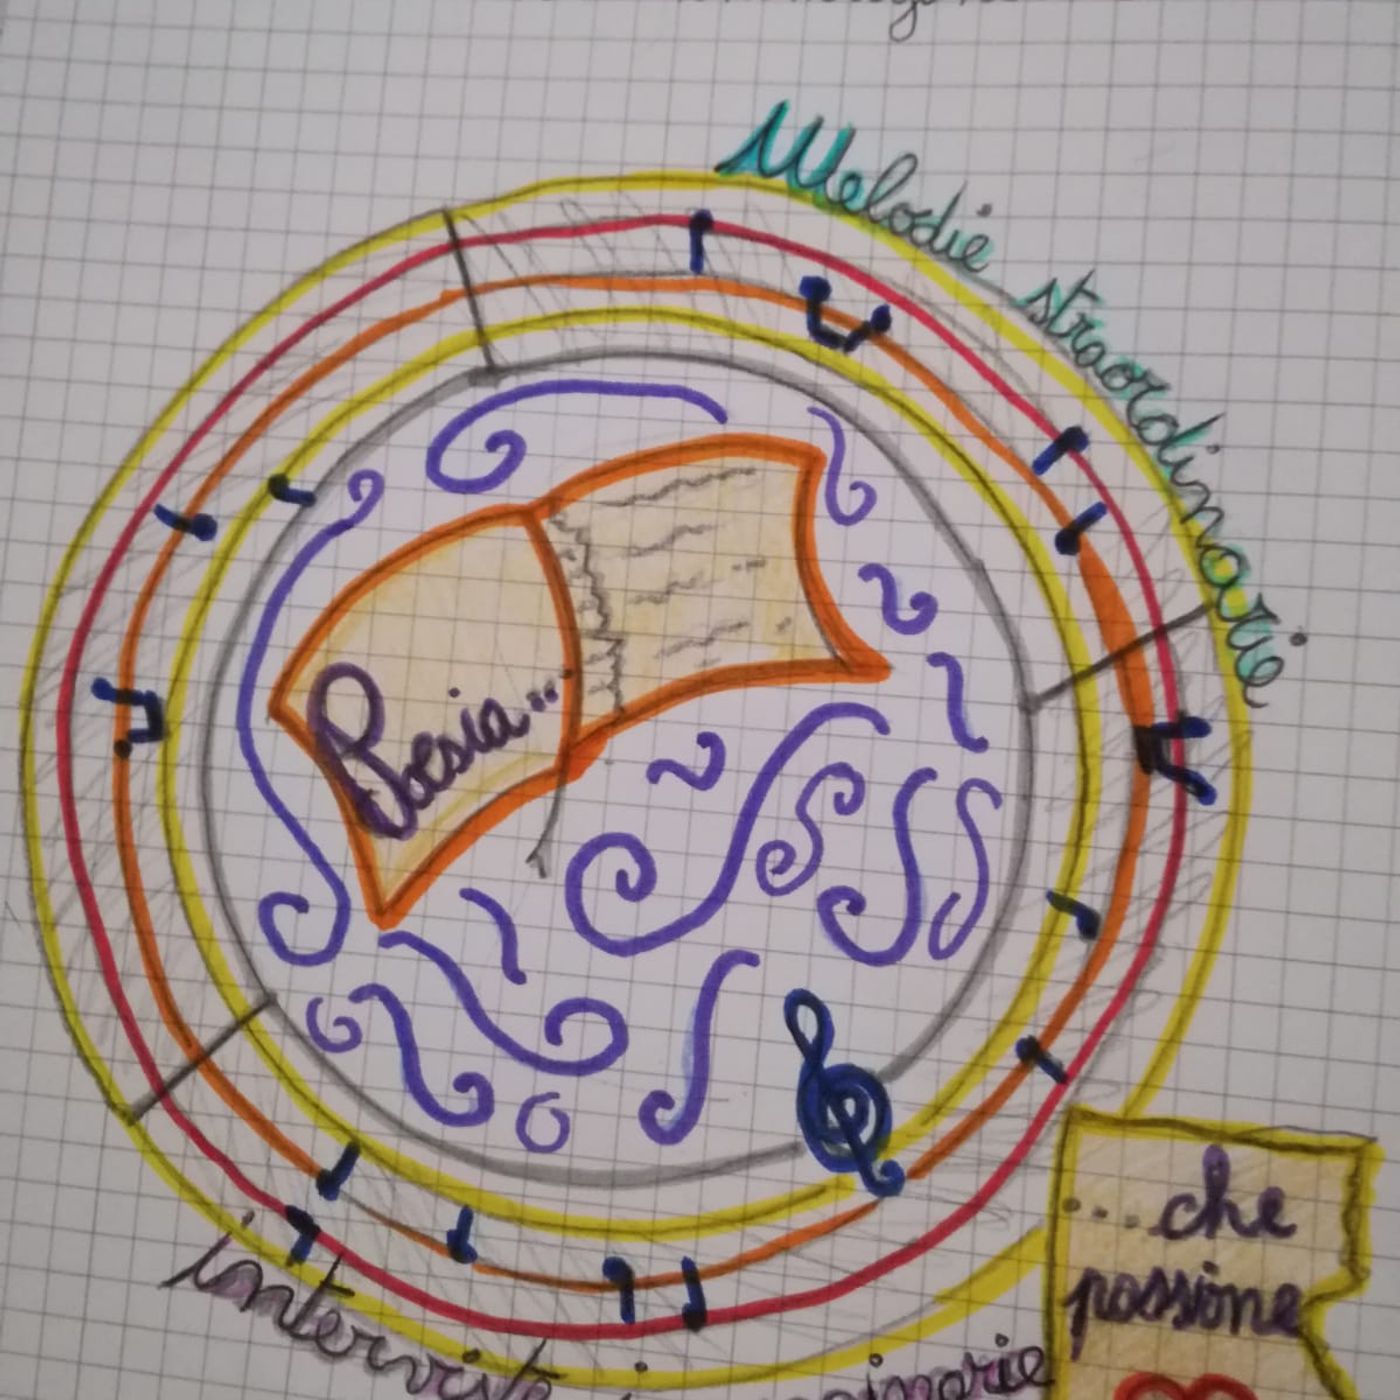 Melodie straordinarie
Poesia...
...che
passione
interviste